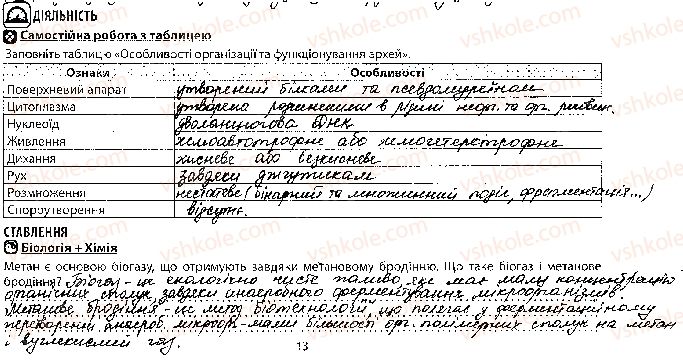 ДІЯЛЬНІСТЬ
Самостійна робота з таблицею
Заповніть таблицю «Особливості організації та функціонування архей».
Ознаки Особливості
Поверхневий апарат утворений білками та псевдомуреїном
Цитоплазма утворена розчиненими в рідині неорг. та орг. речовин.
Нуклеоїд дволанцюгова ДНК
Живлення хемоавтотрофне або хемогетеротрофне
Дихання кисневе або безкисневе
Рух завдяки джгутикам
Розмноження нестатеве (бінарний та множинний поділ, фрагментація...)
Спороутворення відсутн.
СТАВЛЕННЯ
Біологія + Хімія
Метан є основою біогазу, що отримують завдяки метановому бродінню. Що таке біогаз і метанове
бродіння? Біогаз - це екологічно чисте паливо, що має малу концентрацію
органічних сполук завдяки анаеробного ферментування мікроорганізмів.
Метанове бродіння - це метод біотехнології, що полягає у ферментаційному
перетворенні анаероб. мікроорг-мами більшості орг. полімерних сполук на метан
і вуглекислий газ.
13
vshkole.com